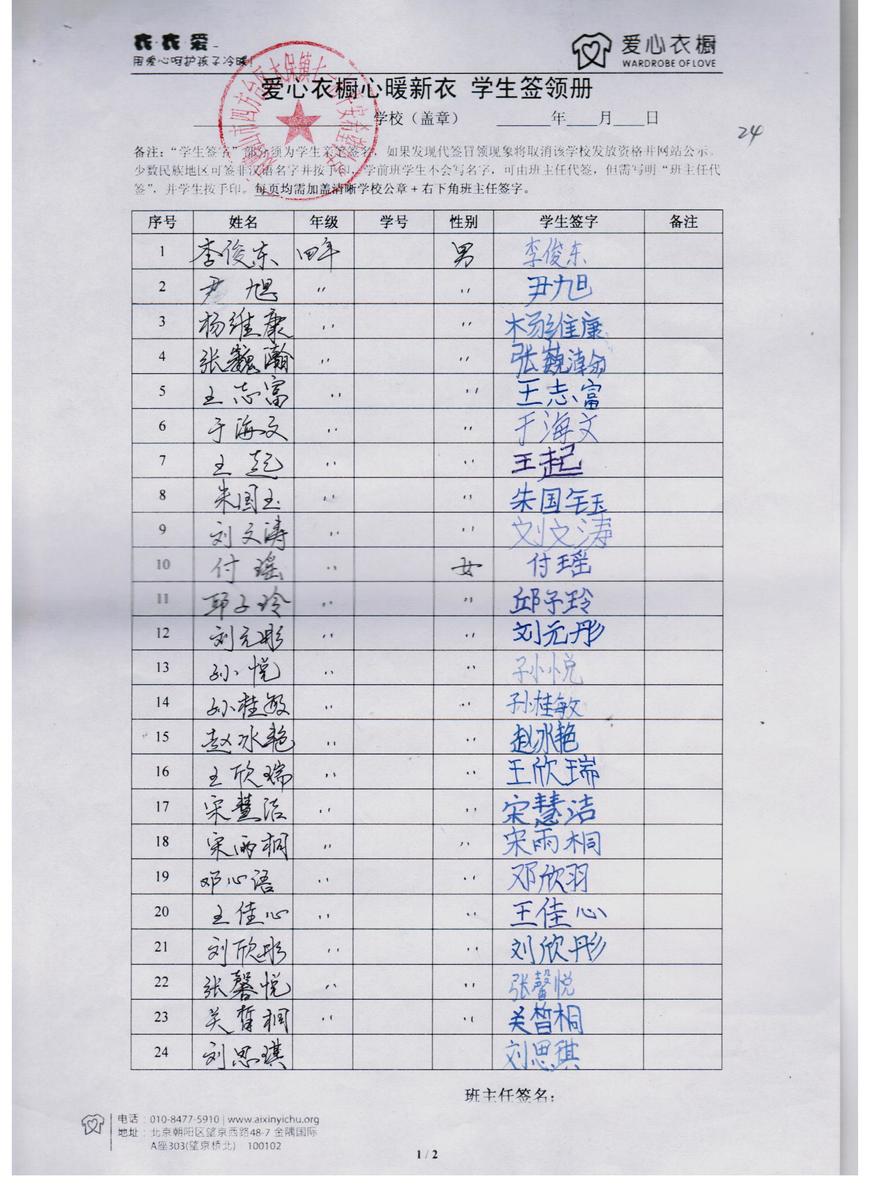 衣·衣 爱
用爱心呵护孩子冷暖!
爱心衣橱
WARDROBE OF LOVE
爱心衣橱心暖新衣 学生签领册
学校（盖章） 年 月 日
24
备注：“学生签字”部分须为学生亲笔签名，如果发现代签冒领现象将取消该学校发放资格并网站公示。
少数民族地区可签非汉语名字并按手印，学前班学生不会写名字，可由班主任代签，但需写明“班主任代
签”，并学生按手印。每页均需加盖清晰学校公章+右下角班主任签字。
序号 姓名 年级 学号 性别 学生签字 备注
1 李俊东 四年 男 李俊东
2 尹旭 〃 〃 尹旭
3 杨维康 〃 〃 杨维康
4 张巍瀚 〃 〃 张巍瀚
5 王志富 〃 〃 王志富
6 于海文 〃 〃 于海文
7 王起 〃 〃 王起
8 朱国玉 〃 〃 朱国玉
9 刘文涛 〃 〃 刘文涛
10 付瑶 〃 女 付瑶
11 邱子玲 〃 〃 邱子玲
12 刘元彤 〃 〃 刘元彤
13 孙悦 〃 〃 孙悦
14 孙桂敏 〃 〃 孙桂敏
15 赵冰艳 〃 〃 赵冰艳
16 王欣瑞 〃 〃 王欣瑞
17 宋慧洁 〃 〃 宋慧洁
18 宋雨桐 〃 〃 宋雨桐
19 邓心语 〃 〃 邓欣羽
20 王佳心 〃 〃 王佳心
21 刘欣彤 〃 〃 刘欣彤
22 张馨悦 〃 〃 张馨悦
23 关皙桐 〃 〃 关皙桐
24 刘思琪 刘思琪
班主任签名：
电话：010-8477-5910 | www.aixinyichu.org
地址：北京朝阳区望京西路48-7 金隅国际
A座303(望京桥北) 100102
1 / 2